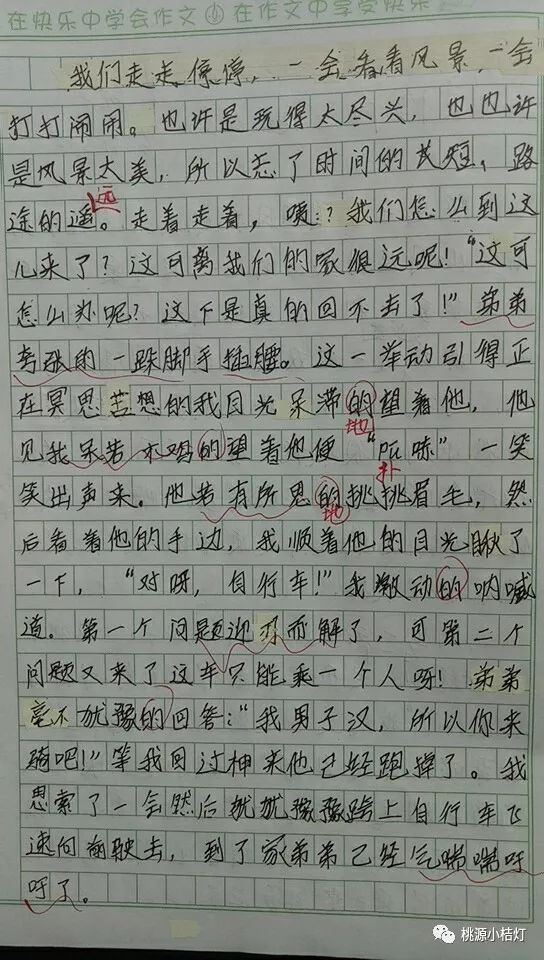 在快乐中学会作文 在作文中学受快乐
我们走走停停,一会看看风景,一会
打打闹闹。也许是玩得太尽兴,也也许
是风景太美,所以忘了时间的长短、路
远
途的遥。走着走着,噢?我们怎么到这
儿来了?这可离我们的家很远呢!“这可
怎么办呢?这下是真的回不去了!”弟弟
夸张的一跺脚手插腰。这一举动引得正
在冥思苦想的我目光呆滞的望着他,他
地
见我呆若木鸡的望着他便“pū哧”一笑
扑
笑出声来。他若有所思的挑挑眉毛,然
地
后看着他的手边,我顺着他的目光瞅了
一下,“对呀,自行车!”我激动的呐喊
道。第一个问题迎刃而解了,可第二个
问题又来了这车只能乘一个人呀!弟弟
毫不犹豫的回答:“我男子汉,所以你来
骑吧!”等我回过神来他已经跑掉了。我
思索了一会然后犹犹豫豫跨上自行车飞
速向前驶去,到了家弟弟已经气喘喘吁
吁了。
桃源小桔灯